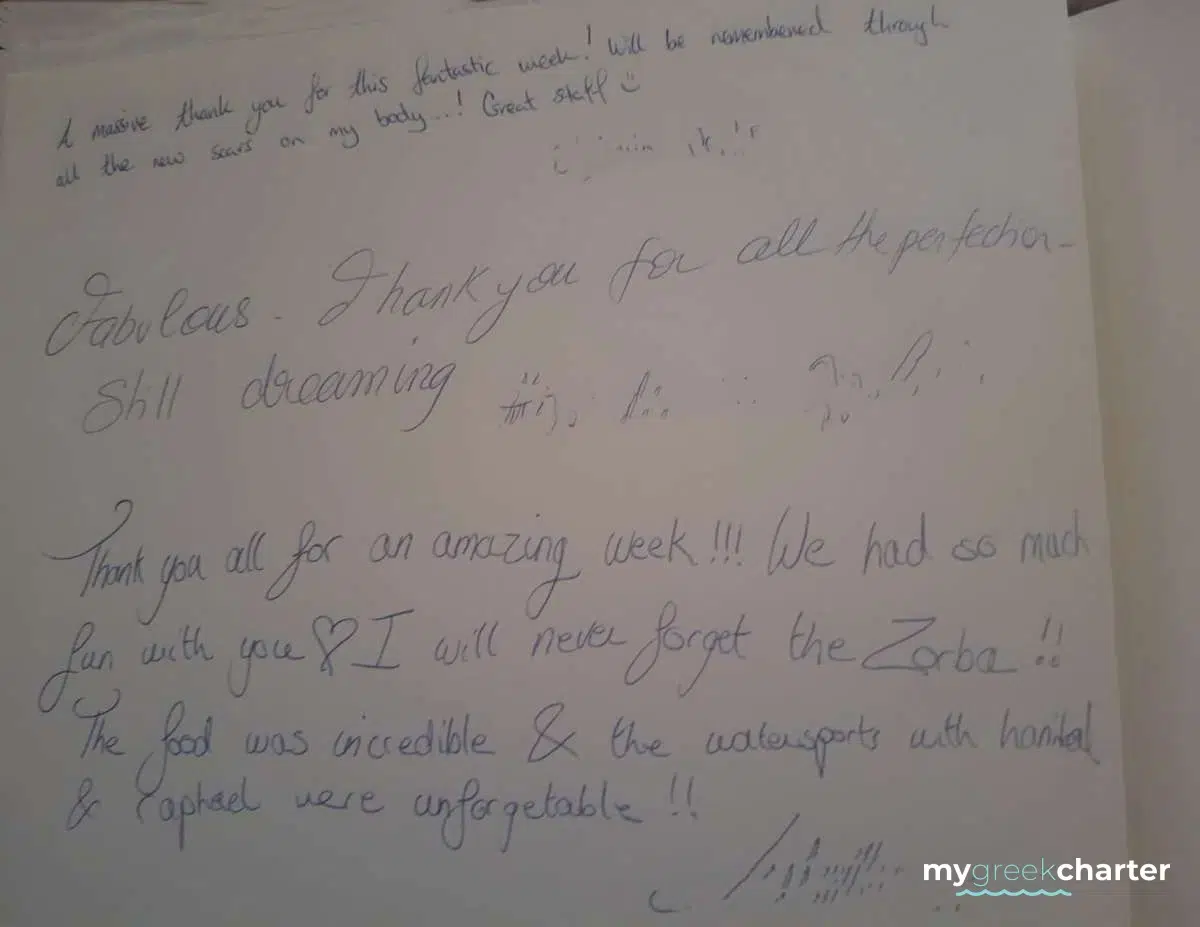 A massive thank you for this fantastic week! Will be remembered through
all the new scars on my body...! Great staff ☺
Fabulous. Thank you for all the perfection-
Still dreaming
Thank you all for an amazing week!!! We had so much
fun with you ♡ I will never forget the Zorba!!
The food was incredible & the watersports with
& raphael were unforgetable!!
mygreekcharter